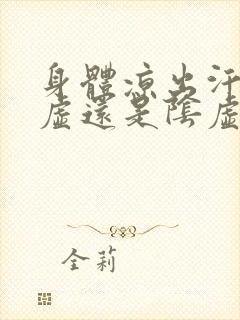 身體涼出汗
虛還是陰虛
全莉